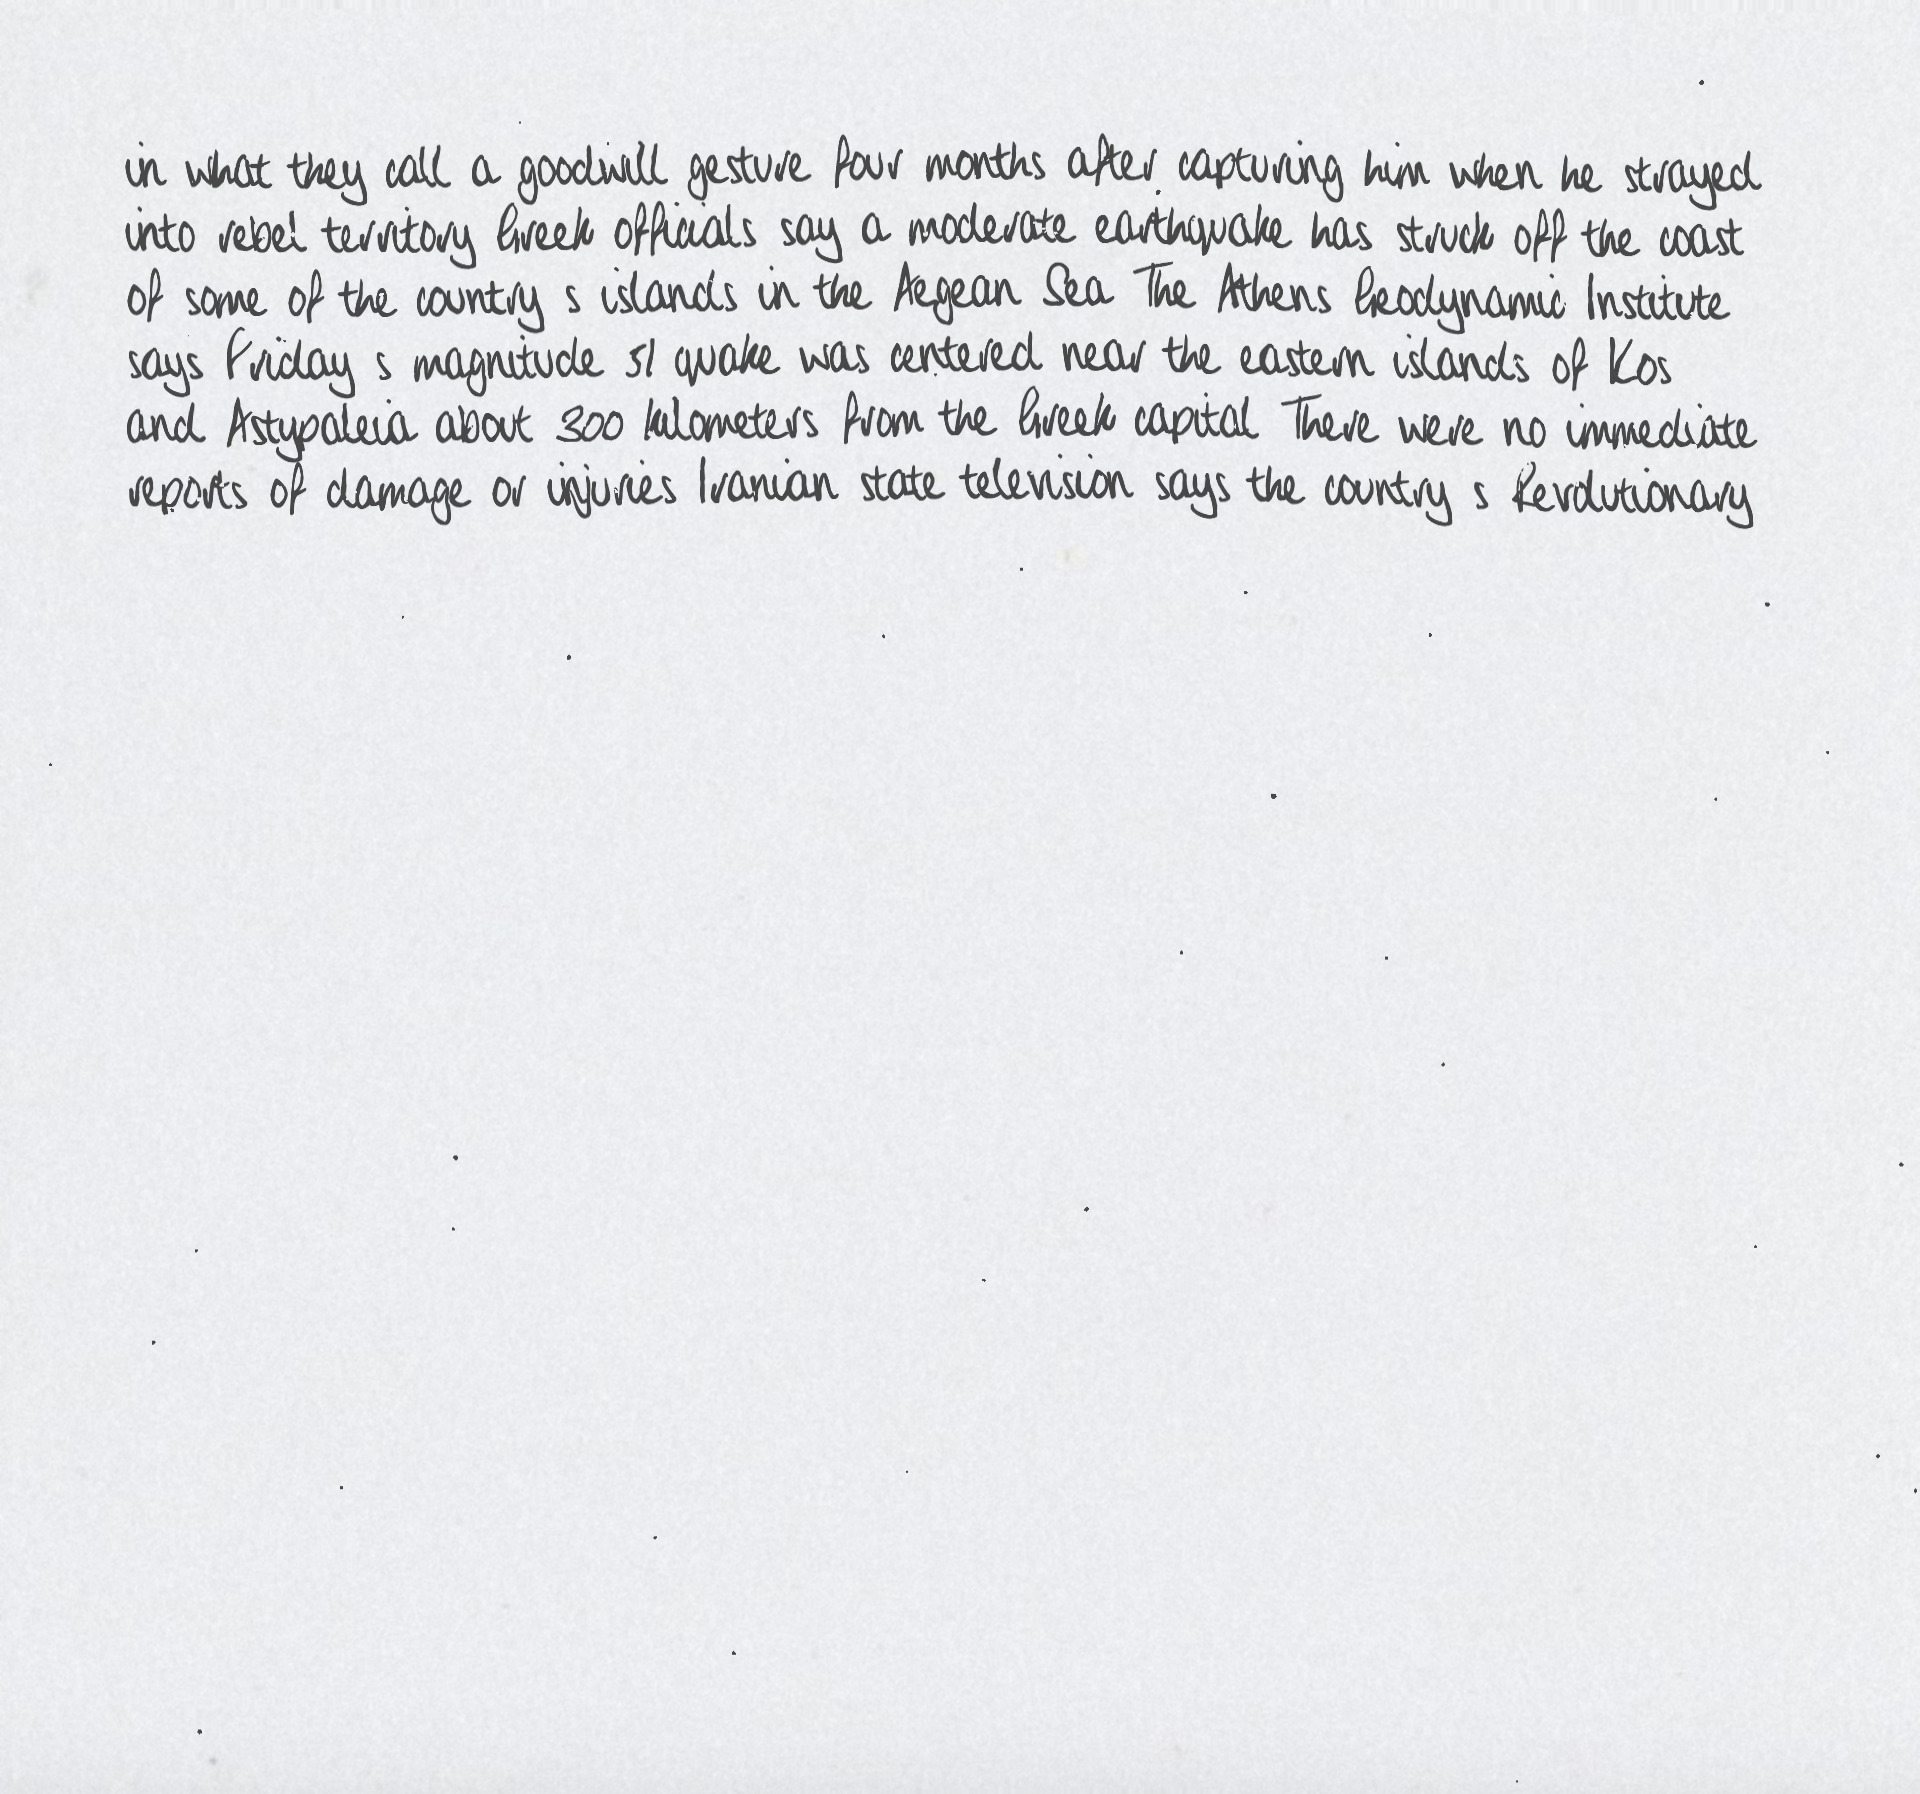 in what they call a goodwill gesture four months after capturing him when he strayed
into rebel territory Greek officials say a moderate earthquake has struck off the coast
of some of the country s islands in the Aegean Sea The Athens Geodynamic Institute
says Friday s magnitude 51 quake was centered near the eastern islands of Kos
and Astypaleia about 300 kilometers from the Greek capital There were no immediate
reports of damage or injuries Iranian state television says the country s Revolutionary